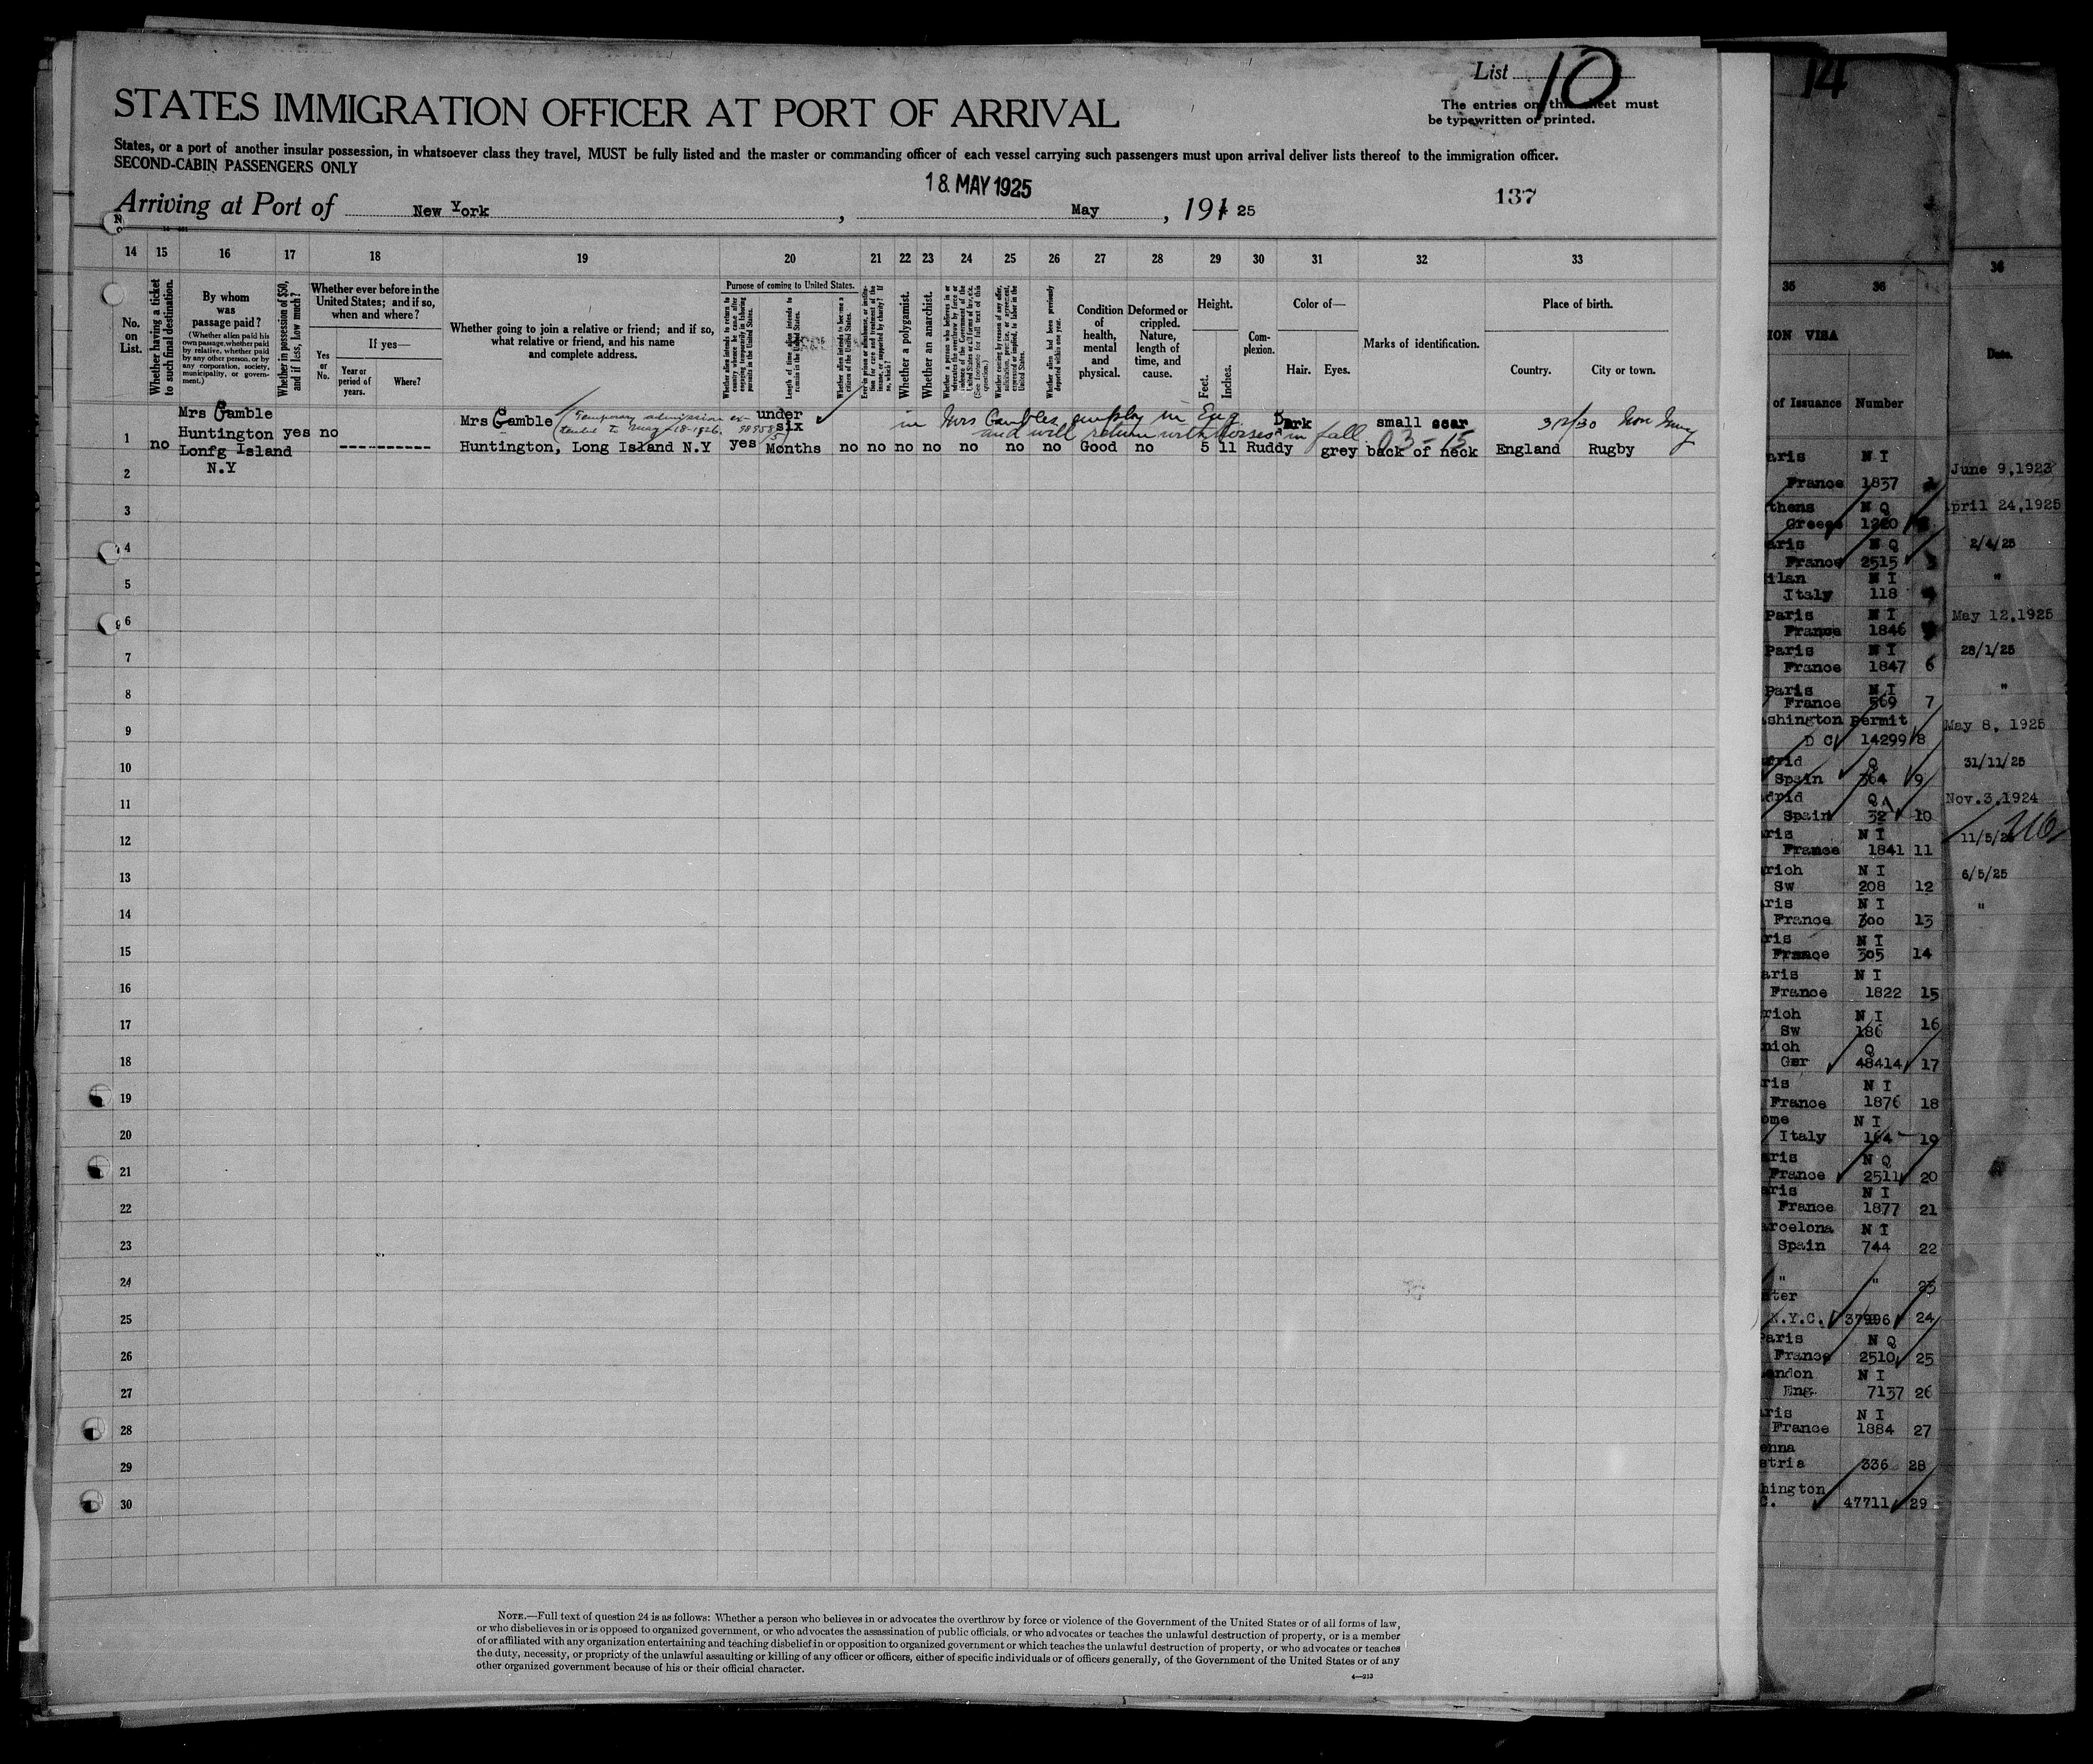 List 10
STATES IMMIGRATION OFFICER AT PORT OF ARRIVAL
The entries on this sheet must
be typewritten or printed.
States, or a port of another insular possession, in whatsoever class they travel, MUST be fully listed and the master or commanding officer of each vessel carrying such passengers must upon arrival deliver lists thereof to the immigration officer.
SECOND-CABIN PASSENGERS ONLY
18 MAY 1925
137
Arriving at Port of New York, May, 191 25
14 15 16 17 18 19 20 21 22 23 24 25 26 27 28 29 30 31 32 33
No. on List.
Whether having a ticket to such final destination.
By whom was passage paid?
(Whether alien paid his own passage, whether paid by relative, whether paid by any other person, or by any corporation, society, municipality, or government.)
Whether in possession of $50, and if less, how much?
Whether ever before in the United States; and if so, when and where?
Yes or No.
If yes—
Year or period of years.
Where?
Whether going to join a relative or friend; and if so, what relative or friend, and his name and complete address.
Purpose of coming to United States.
Whether alien intends to return to country whence he came after engaging temporarily in laboring pursuits in the United States.
Length of time alien intends to remain in the United States.
Whether alien intends to become a citizen of the United States.
Ever in prison or almshouse, or institution for care and treatment of the insane, or supported by charity? If so, which?
Whether a polygamist.
Whether an anarchist.
Whether a person who believes in or advocates the overthrow by force or violence of the Government of the United States or all forms of law, etc. (See footnote for full text of this question.)
Whether coming by reason of any offer, solicitation, promise, or agreement, expressed or implied, to labor in the United States.
Whether alien had been previously deported within one year.
Condition of health, mental and physical.
Deformed or crippled. Nature, length of time, and cause.
Height.
Feet. Inches.
Complexion.
Color of—
Hair. Eyes.
Marks of identification.
Place of birth.
Country. City or town.
Mrs Gamble
Huntington yes no
1 no Lonfg Island
N.Y
Mrs Gamble (Temporary admission extended to May-18-1926. 98958/5)
Huntington, Long Island N.Y yes
under
six
Months
no no no no no no no Good no 5 11 Ruddy
in Mrs Gambles employ in Eng
and will return with horses in fall.
Dark
grey
small scar
03-15
back of neck
England Rugby
2
3
4
5
6
7
8
9
10
11
12
13
14
15
16
17
18
19
20
21
22
23
24
25
26
27
28
29
30
NOTE.—Full text of question 24 is as follows: Whether a person who believes in or advocates the overthrow by force or violence of the Government of the United States or of all forms of law,
or who disbelieves in or is opposed to organized government, or who advocates the assassination of public officials, or who advocates or teaches the unlawful destruction of property, or is a member
of or affiliated with any organization entertaining and teaching disbelief in or opposition to organized government or which teaches the unlawful destruction of property, or who advocates or teaches
the duty, necessity, or propriety of the unlawful assaulting or killing of any officer or officers, either of specific individuals or of officers generally, of the Government of the United States or of any
other organized government because of his or their official character.
4—213
14
35 36
ION VISA
of Issuance Number
aris N I
France 1837
thens N Q
Greece 1220
aris N Q
France 2515
ilan N I
Italy 118
Paris N I
France 1846
Paris N I
France 1847 6
Paris N I
France 569 7
shington permit
D C 14299 8
drid Q
Spain 364 9
drid Q
Spain 32 10
ris N I
France 1841 11
rich N I
Sw 208 12
ris N I
France 300 13
ris N I
France 305 14
aris N I
France 1822 15
rich N I
Sw 186 16
nich Q
Ger 48414 17
ris N I
France 1876 18
ome N I
Italy 164 19
aris N Q
France 2511 20
aris N I
France 1877 21
arcelona N I
Spain 744 22
" " 23
ter
N.Y.C. 37996 24
Paris N Q
France 2510 25
ondon N I
Eng. 7137 26
ris N I
France 1884 27
enna
stria 336 28
hington
C. 47711 29
36
Date.
June 9,1923
April 24,1925
2/4/25
"
May 12,1925
28/1/25
"
May 8, 1925
31/11/25
Nov.3,1924
11/5/2
6/5/25
"